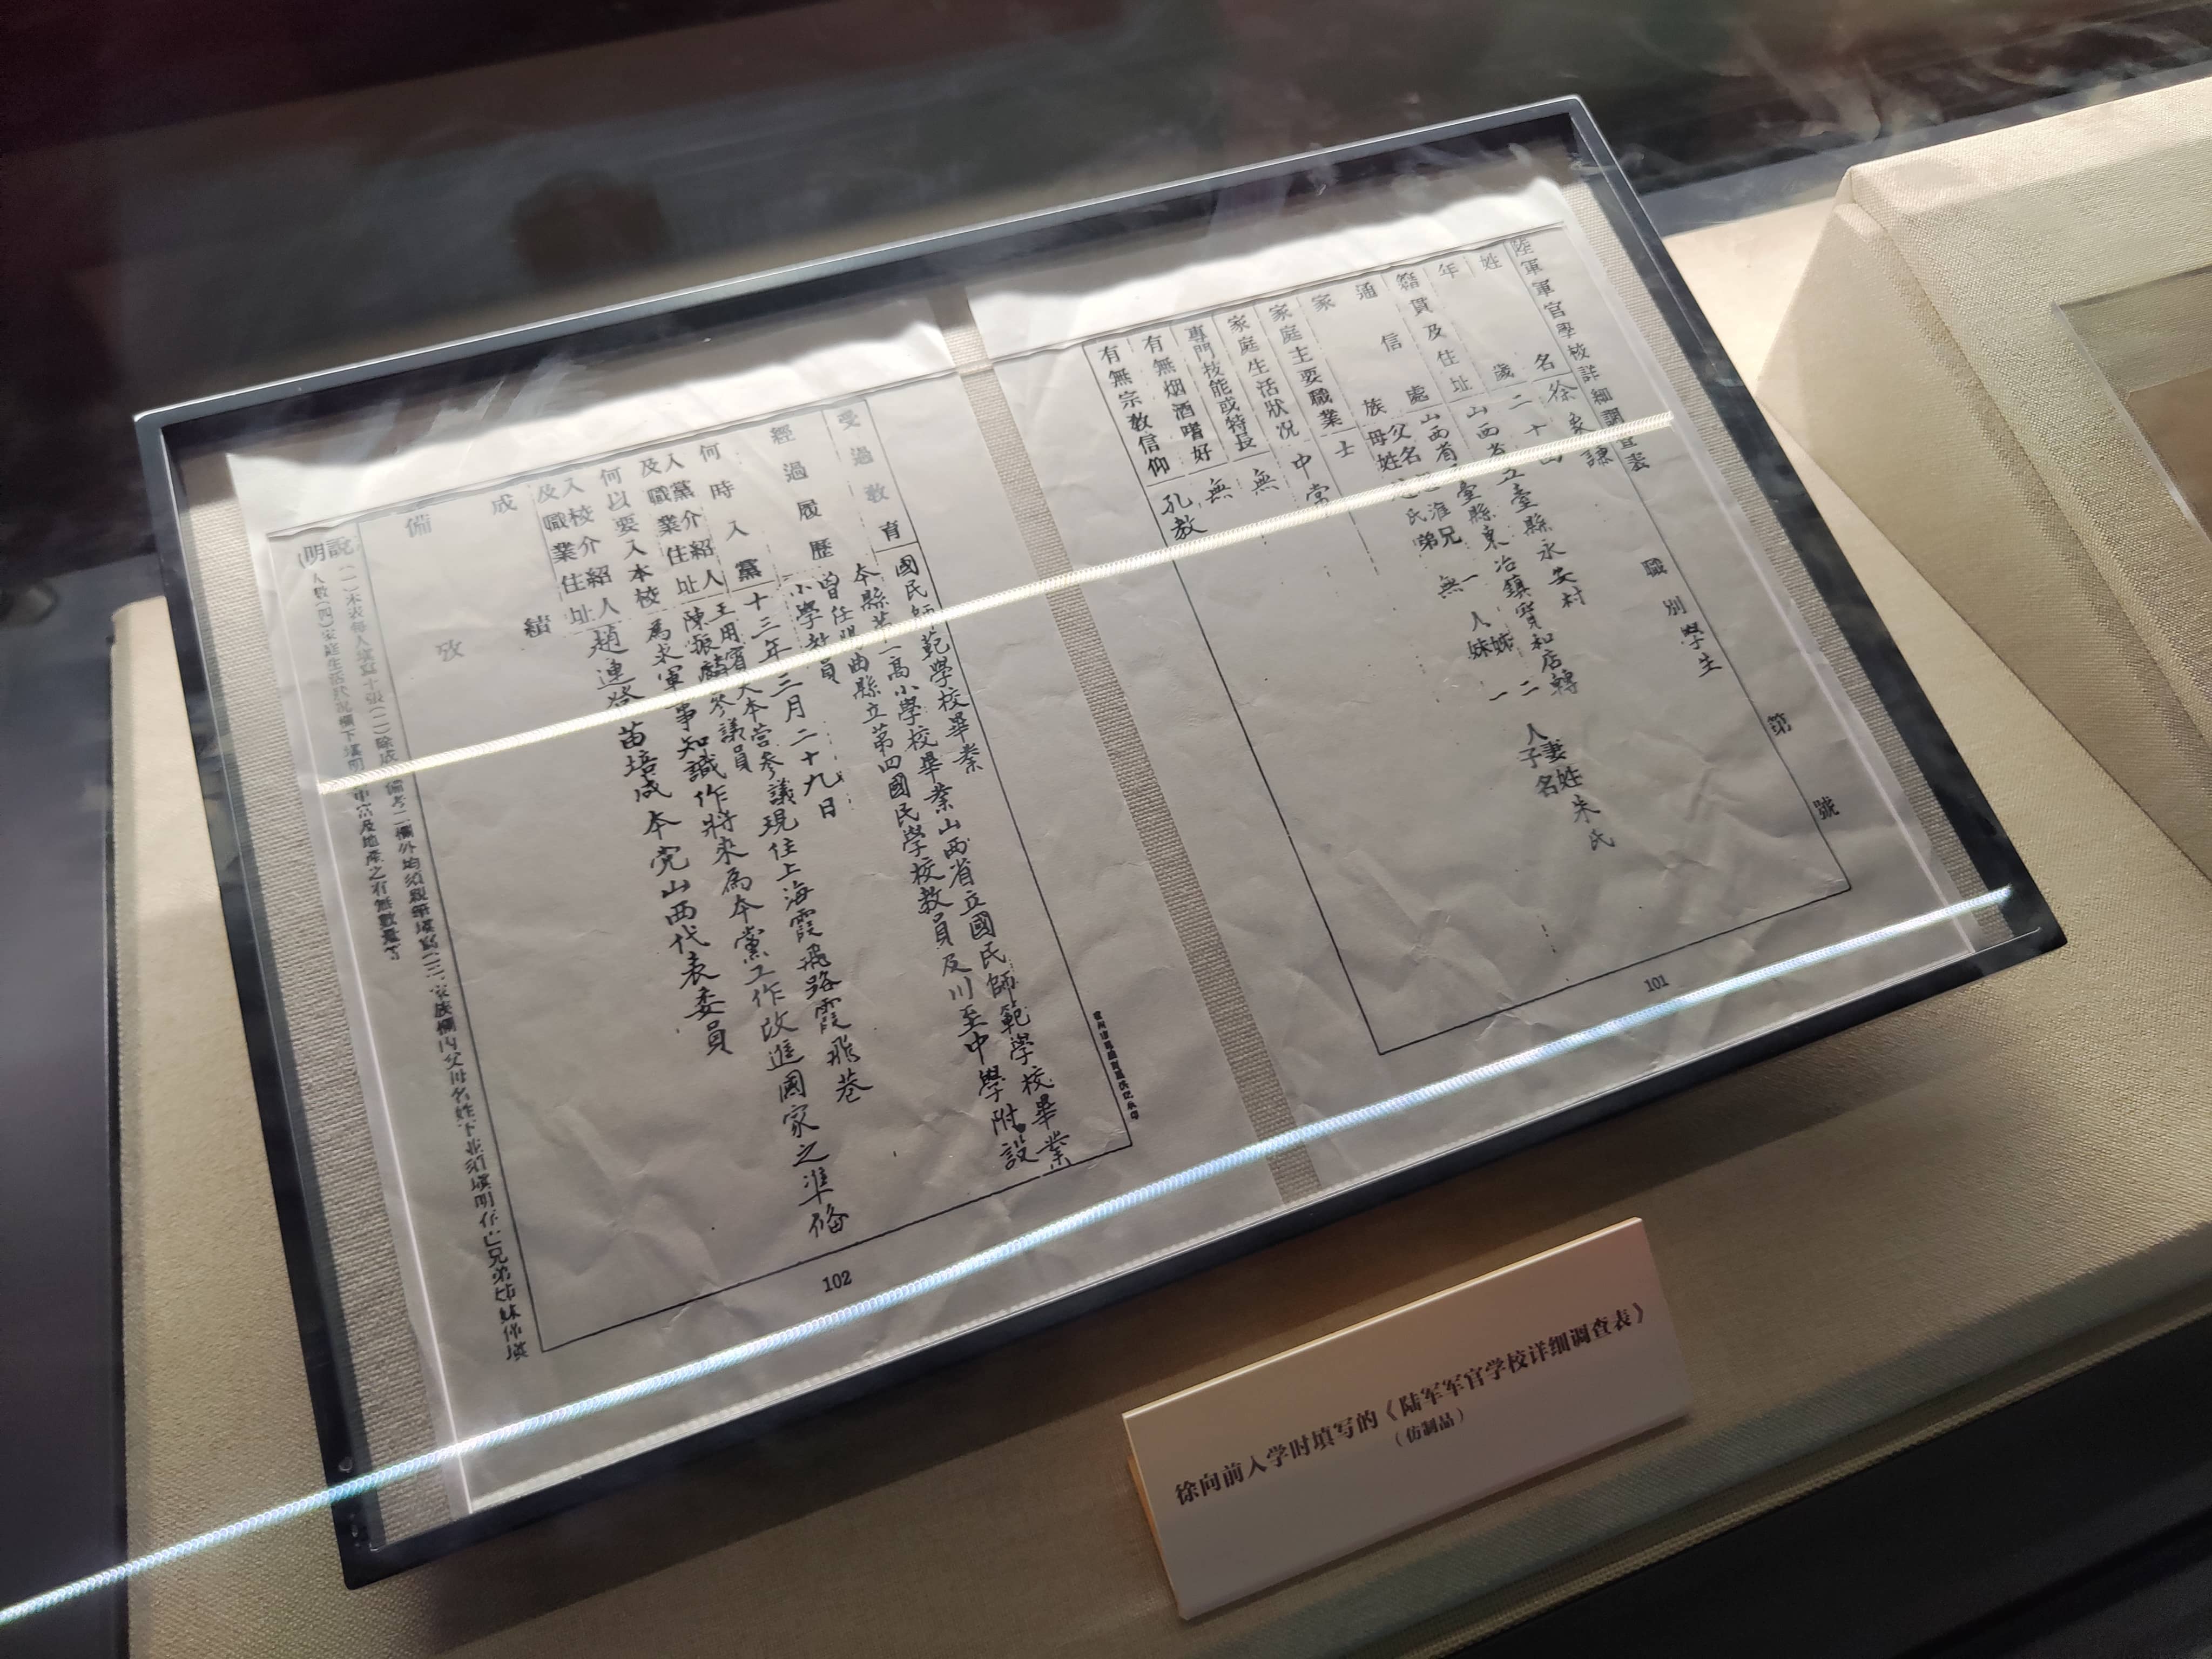 陸軍軍官學校詳細調查表
職別學生
第 號
姓名 徐象謙
年歲 二十四
籍貫及住址 山西省五臺縣永安村
通信處 山西省五臺縣東冶鎮寶和店轉
家族 父名 淮 母姓 氏 兄 一人 弟 無 姊 二人 妹 一 妻姓朱氏 子名
家庭主要職業 士
家庭生活狀況 中常
專門技能或特長 無
有無烟酒嗜好 無
有無宗教信仰 孔教
101
受過教育 國民師範學校畢業
本縣第一高小學校畢業山西省立國民師範學校畢業
經過履歷 曾任陽曲縣立第四國民學校教員及川至中學附設
小學教員
何時入黨 十三年三月二十九日
入黨介紹人及職業住址 王用賓大本營參議現住上海霞飛路霞飛巷
陳振麟參議員
何以要入本校 為求軍事知識作將來為本黨工作改進國家之準俻
入校介紹人及職業住址 趙連登苗培成本党山西代表委員
成績
備攷
(說明)(一)本表每人填寫十張(二)除成 備考二欄外均須親筆填寫(三)家族欄內父母名姓下並須填明存亡兄弟姊妹係填
人數(四)家庭生活狀況欄下填明 中富及地產之有無數量等
102
徐向前入学时填写的《陆军军官学校详细调查表》
（仿制品）